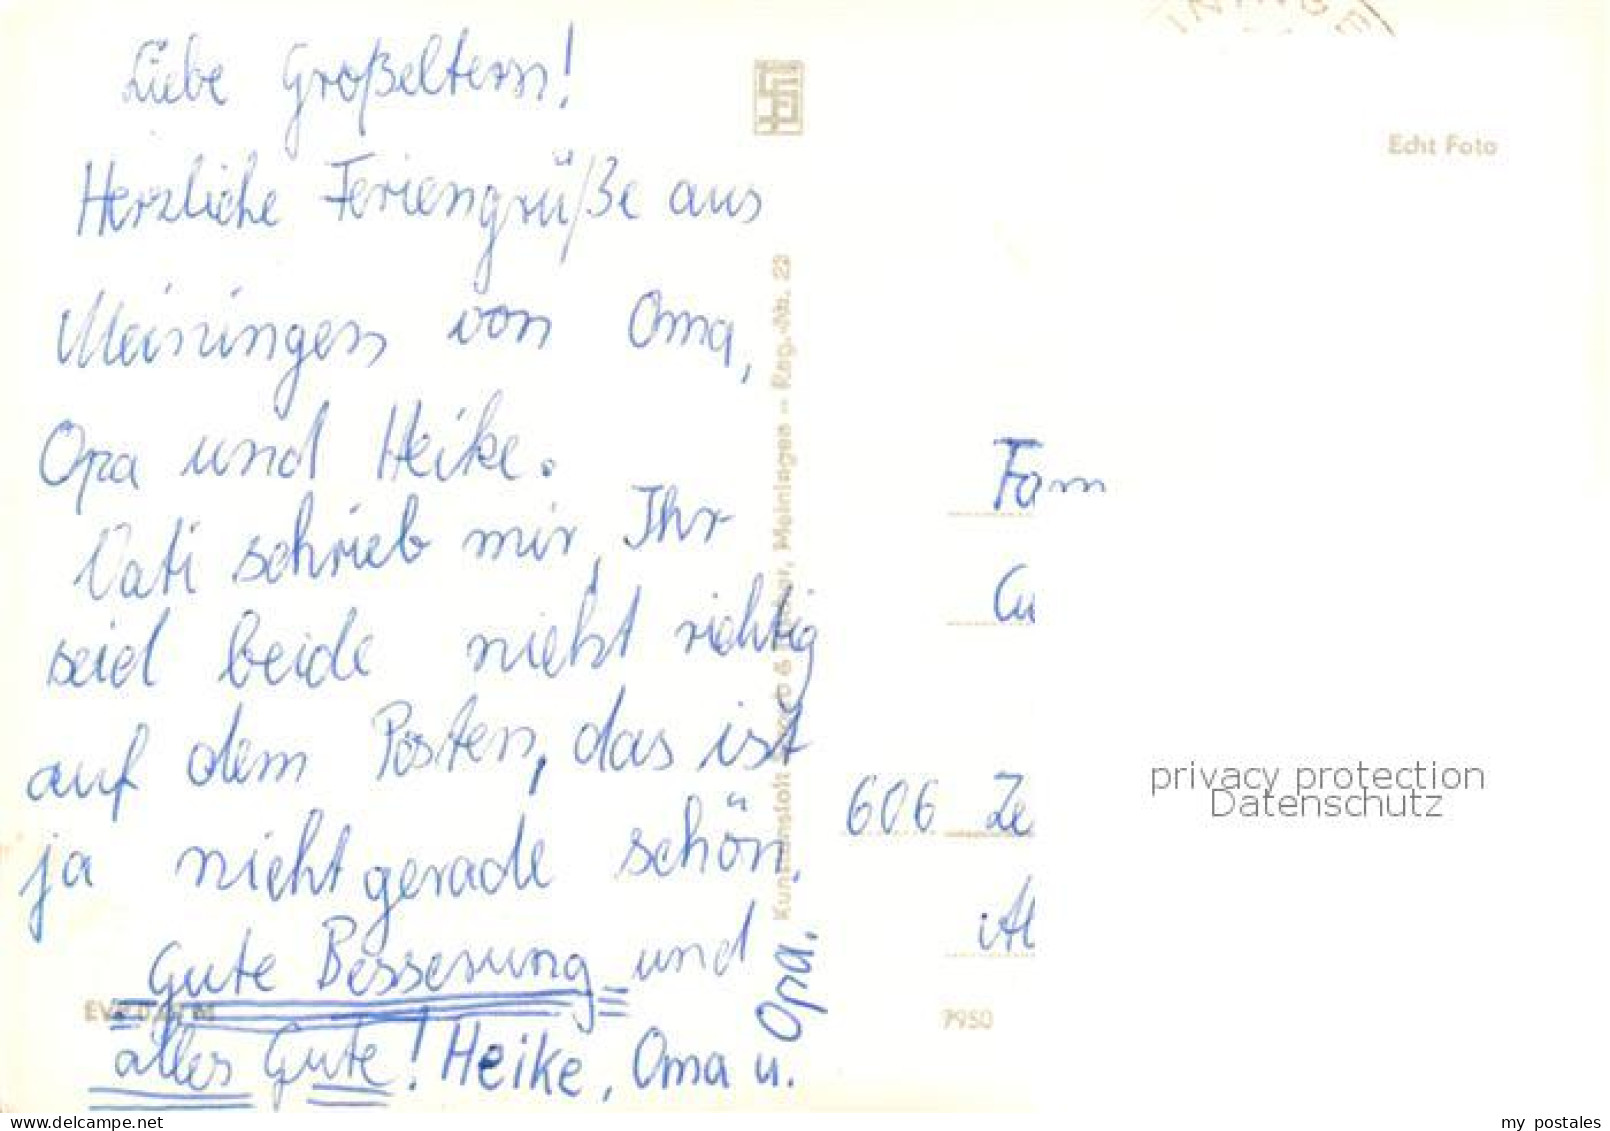 Liebe Großeltern!
Herzliche Feriengrüße aus
Meiningen von Oma,
Opa und Heike.
Vati schrieb mir, Ihr
seid beide nicht richtig
auf dem Posten, das ist
ja nicht gerade schön.
Gute Besserung und
alles Gute! Heike, Oma u.
Opa.
Echt Foto
Meiningen – Reg.-Nr. 23
Fam
606 Ze
7950
privacy protection
Datenschutz
my postales